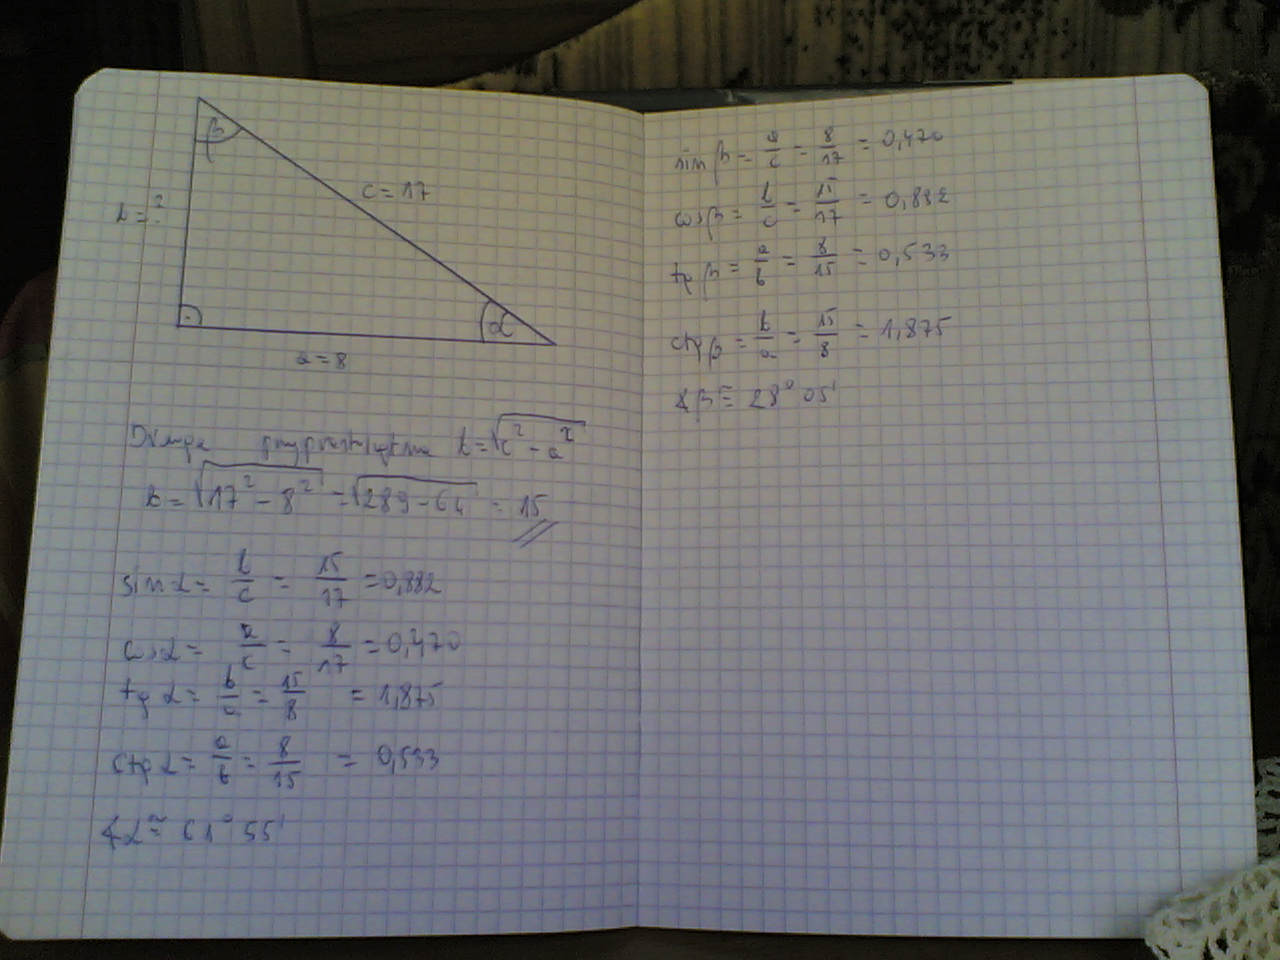 β
c = 17
b = ?
α
a = 8
Druga przyprostokątna b = √c² - a²
b = √17² - 8² = √289 - 64 = 15
sin α = b/c = 15/17 = 0,882
cos α = a/c = 8/17 = 0,470
tg α = b/a = 15/8 = 1,875
ctg α = a/b = 8/15 = 0,533
∢α ≅ 61° 55'
sin β = a/c = 8/17 = 0,470
cos β = b/c = 15/17 = 0,882
tg β = a/b = 8/15 = 0,533
ctg β = b/a = 15/8 = 1,875
∢β ≅ 28° 05'